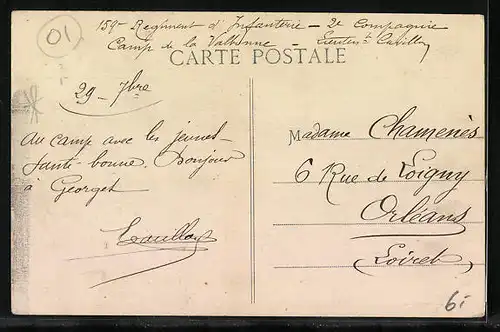 01
159e Regiment d'Infanterie - 2e Compagnie
Camp de la Valbonne - Lieutent
CARTE POSTALE
29 - 7bre
Au camp avec les jeunes
Santé bonne. Bonjour
à Georges
Madame Chamenès
6 Rue de Loigny
Orléans
Loiret
6.